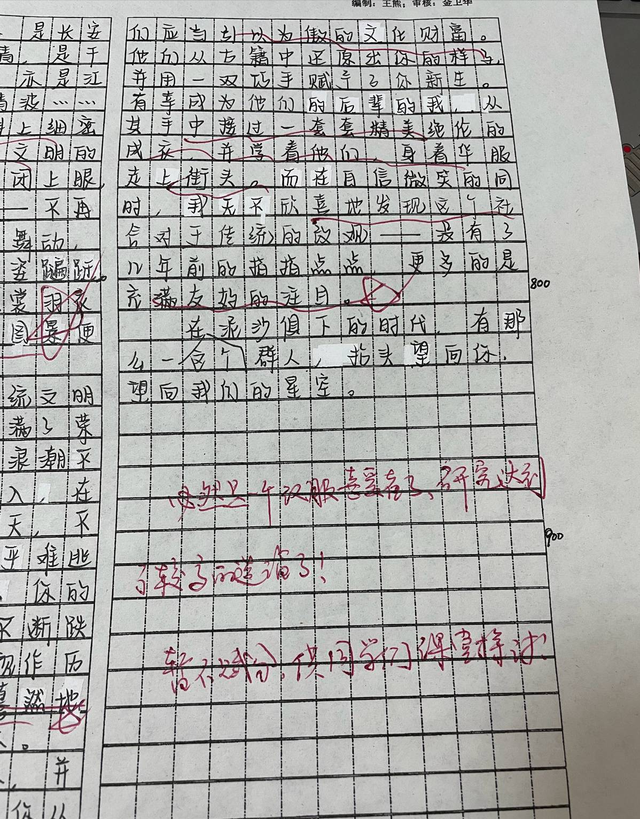 编制：王熊；审核：金卫华
是长安
情，是于
亦是江
清波……
上细密
文明的
闭上眼，
一不再
舞动，
姿蹁跹。
裳羽衣
图景便
统文明
满了荣
浪潮平
入，在
天，不
乎难觅
，你的
不断跌
况作历
蓦然地
。
，并
你从
们应当引以为傲的文化财富。
他们从古籍中还原出你的样貌，
并用一双巧手赋予了你新生。
有幸成为他们的后辈的我，从
其手中接过一套套精美绝伦的
成衣，并学着他们，身着华服
走上街头。而在自信微笑的同
时，我无不欣喜地发现这个社
会对于传统的改观——没有了
几年前的指指点点，更多的是
充满友好的注目。
800
在泥沙俱下的时代，有那
么一个群人，抬头望向你，
望向我们的星空。
必然是个汉服喜爱者了，研究达到
900
了较高的造诣了！
暂不赋分，供同学们课堂样评！